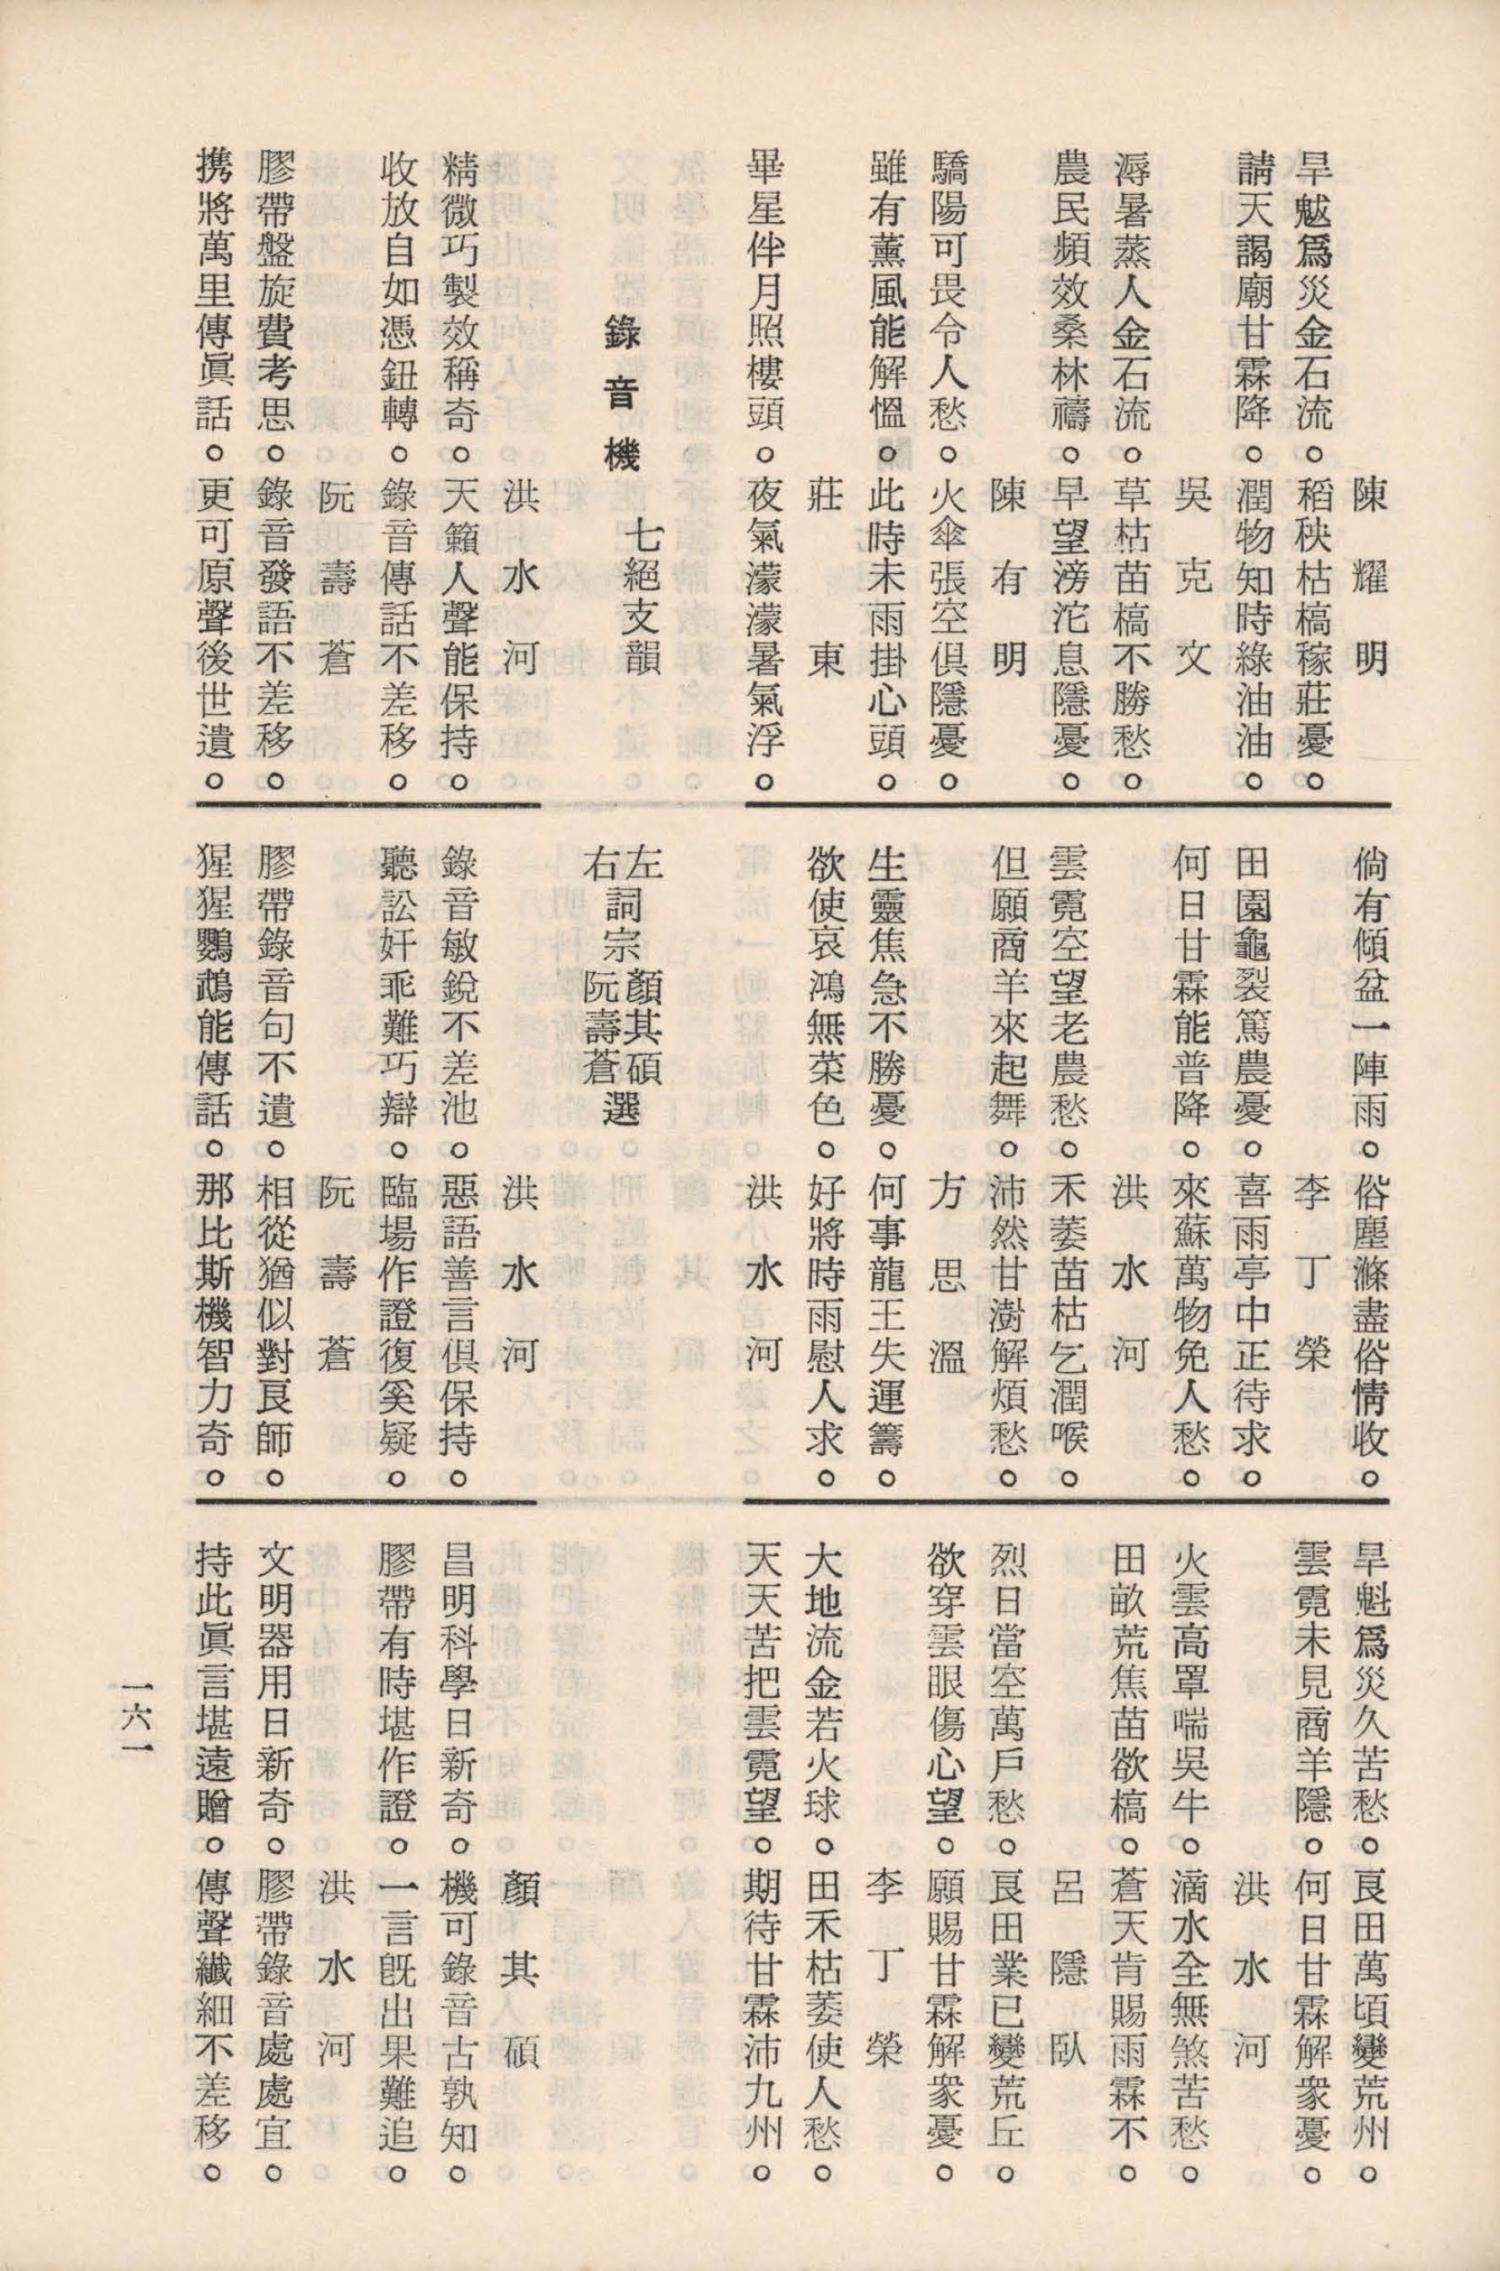 陳耀明
旱魃爲災金石流。稻秧枯槁稼莊憂。
請天謁廟甘霖降。潤物知時綠油油。
吳克文
溽暑蒸人金石流。草枯苗槁不勝愁。
農民頻效桑林禱。早望滂沱息隱憂。
陳有明
驕陽可畏令人愁。火傘張空俱隱憂。
雖有薰風能解慍。此時未雨掛心頭。
莊東
畢星伴月照樓頭。夜氣濛濛暑氣浮。
倘有傾盆一陣雨。俗塵滌盡俗情收。
李丁榮
田園龜裂篤農憂。喜雨亭中正待求。
何日甘霖能普降。來蘇萬物免人愁。
洪水河
雲霓空望老農愁。禾萎苗枯乞潤喉。
但願商羊來起舞。沛然甘澍解煩愁。
方思溫
生靈焦急不勝憂。何事龍王失運籌。
欲使哀鴻無菜色。好將時雨慰人求。
洪水河
旱魁爲災久苦愁。良田萬頃變荒州。
雲霓未見商羊隱。何日甘霖解衆憂。
洪水河
火雲高罩喘吳牛。滴水全無煞苦愁。
田畝荒焦苗欲槁。蒼天肯賜雨霖不
呂隱臥
烈日當空萬戶愁。良田業已變荒丘。
欲穿雲眼傷心望。願賜甘霖解衆憂。
李丁榮
大地流金若火球。田禾枯萎使人愁。
天天苦把雲霓望。期待甘霖沛九州。
錄音機 七絕支韻
左詞宗顏其碩選
右詞宗阮壽蒼選
洪水河
精微巧製效稱奇。天籟人聲能保持。
收放自如憑鈕轉。錄音傳話不差移。
阮壽蒼
膠帶盤旋費考思。錄音發語不差移。
携將萬里傳眞話。更可原聲後世遺。
洪水河
錄音敏銳不差池。惡語善言俱保持。
聽訟奸乖難巧辯。臨場作證復奚疑。
阮壽蒼
膠帶錄音句不遺。相從猶似對良師。
猩猩鸚鵡能傳話。那比斯機智力奇。
顏其碩
昌明科學日新奇。機可錄音古孰知。
膠帶有時堪作證。一言旣出果難追。
洪水河
文明器用日新奇。膠帶錄音處處宜。
持此眞言堪遠贈。傳聲纖細不差移。
一六一